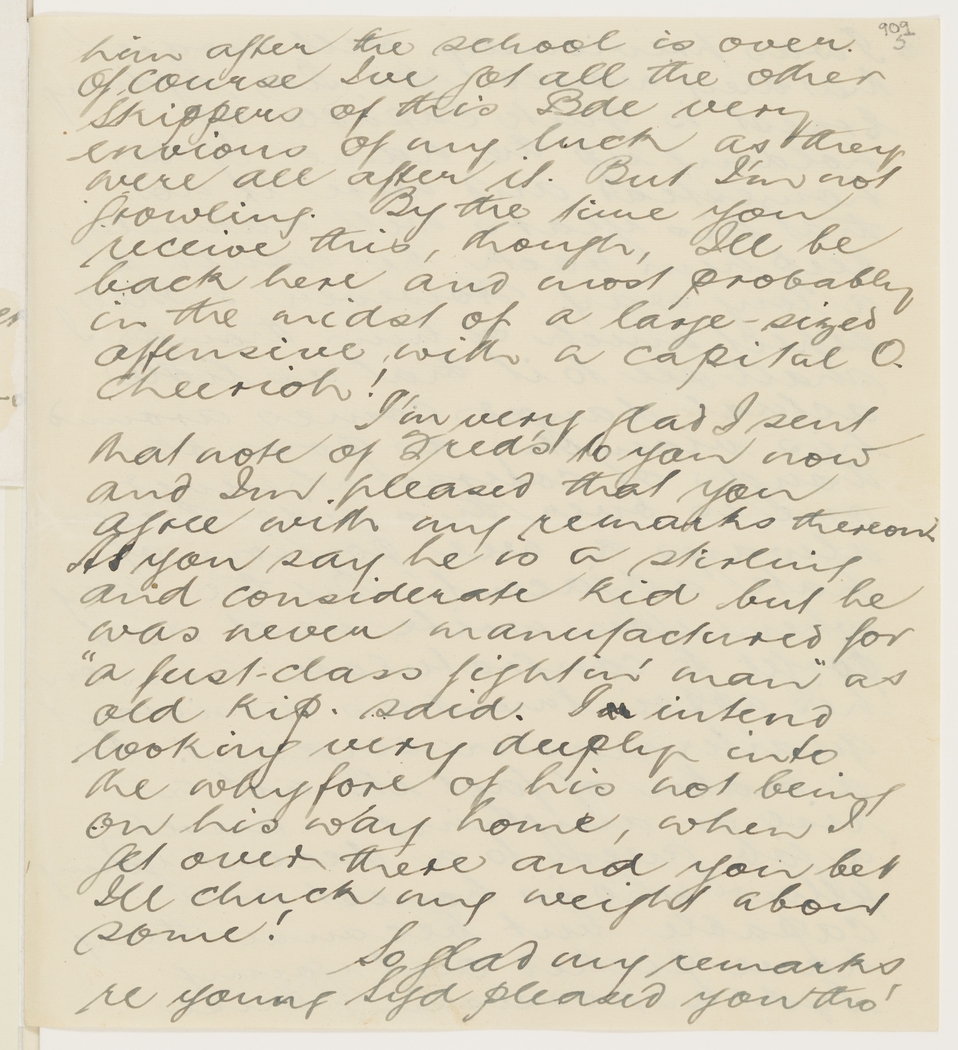 909
5
him after the school is over.
Of course I've got all the other
Skippers of this Bde very
envious of my luck as they
were all after it. But I'm not
growling. By the time you
receive this, though, I'll be
back here and most probably
in the midst of a large-sized
offensive, with a capital O.
Cheerioh!
I'm very glad I sent
that note of Fred's to you now
and I'm pleased that you
agree with my remarks thereon.
As you say he is a stirling
and considerate kid but he
was never manufactured for
"a fust-class fightin' man" as
old Kip. said. I intend
looking very deeply into
the whyfore of his not being
on his way home, when I
get over there and you bet
I'll chuck my weight about
some!
So glad my remarks
re young Syd pleased you tho'